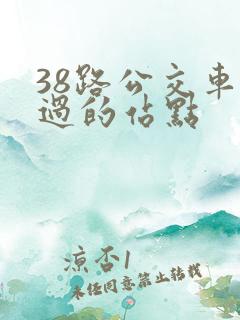 38路公交车
過的佔點
凉否1
未经同意禁止转载